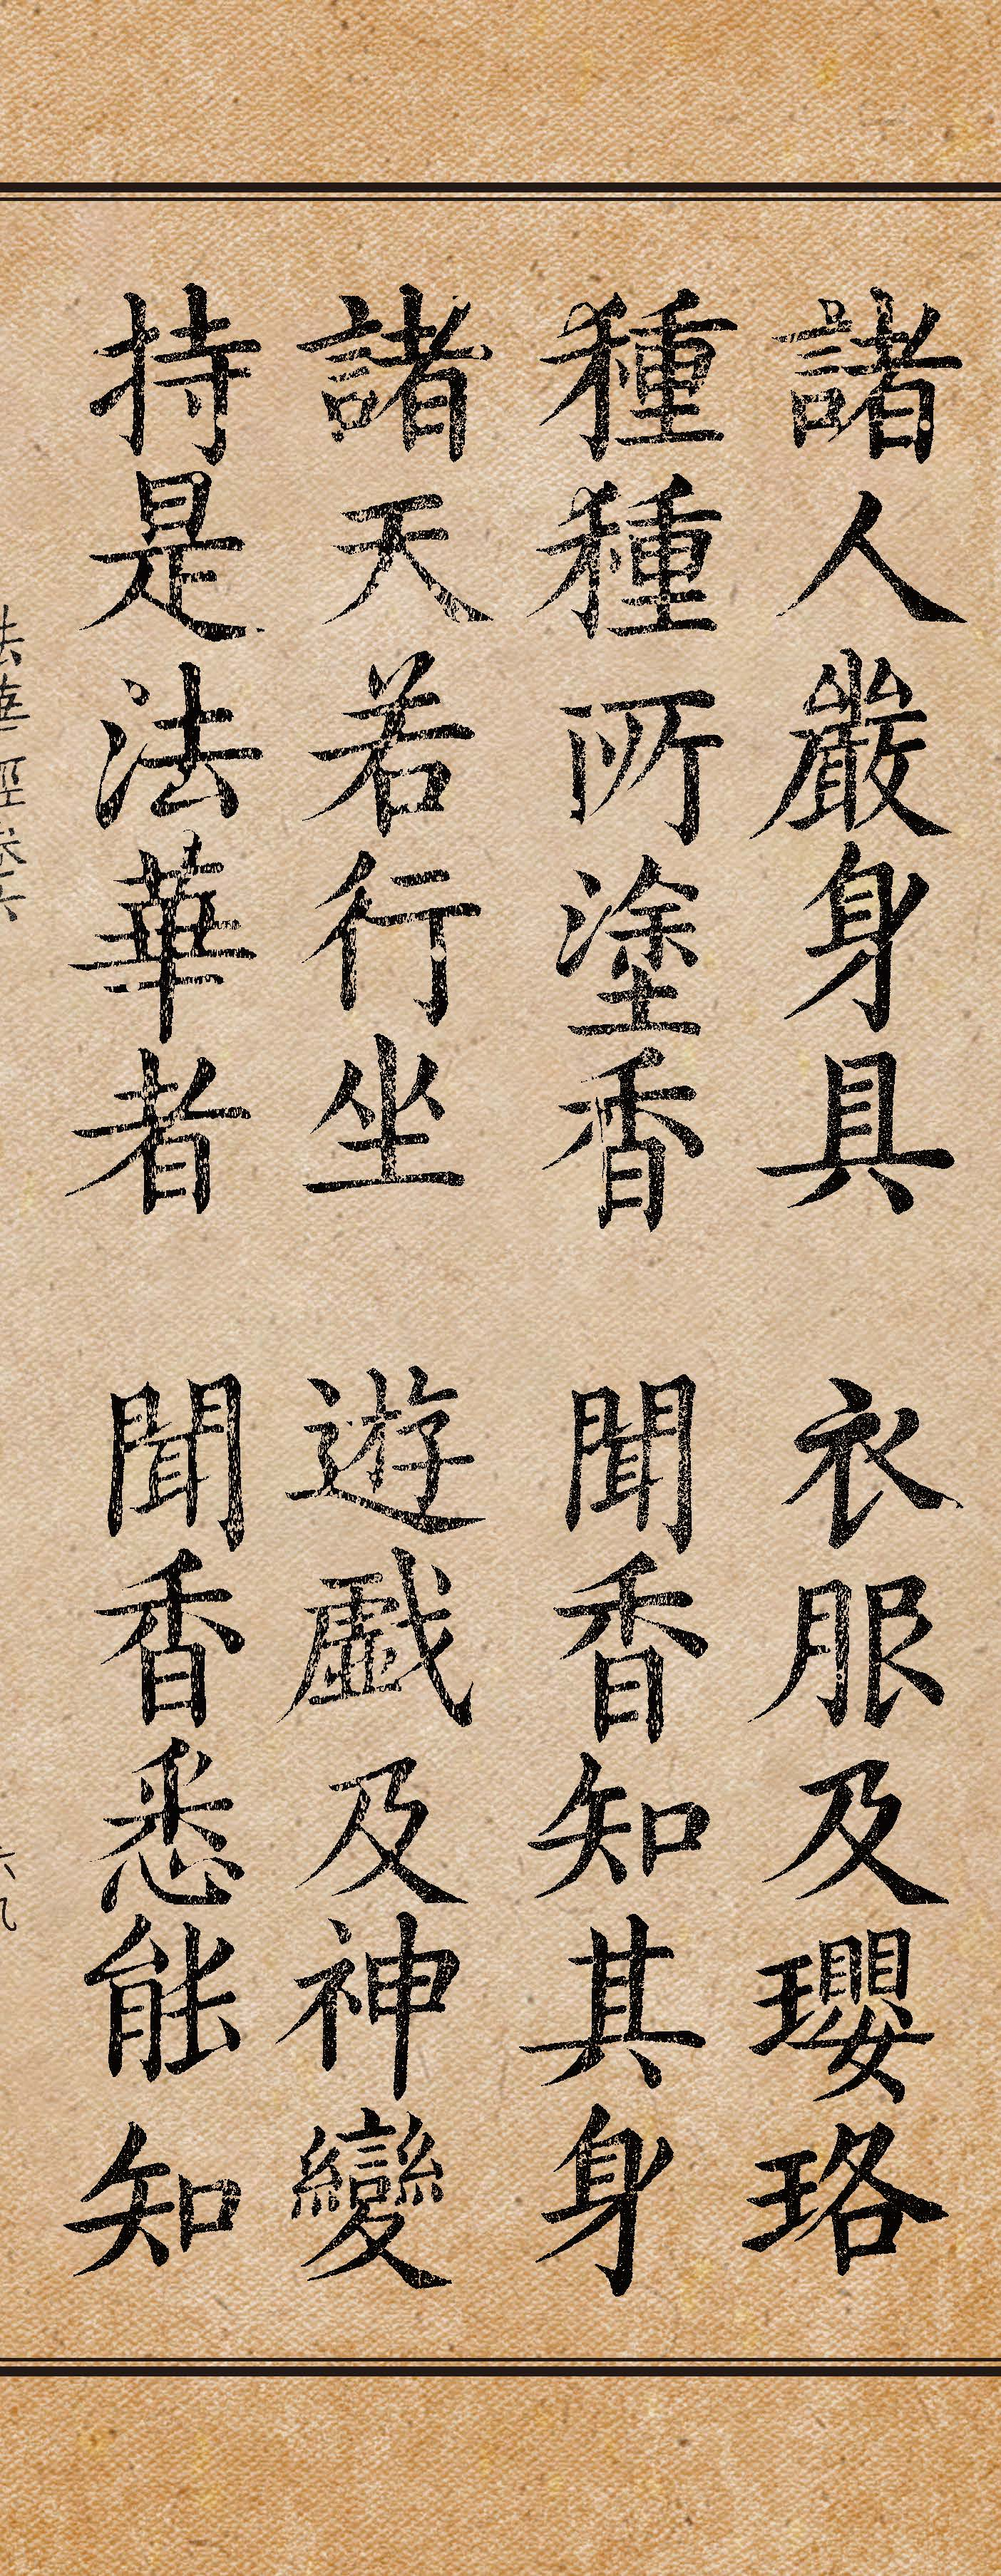 諸人嚴身具 衣服及瓔珞
種種所塗香 聞香知其身
諸天若行坐 遊戲及神變
持是法華者 聞香悉能知
法華經卷六 六九